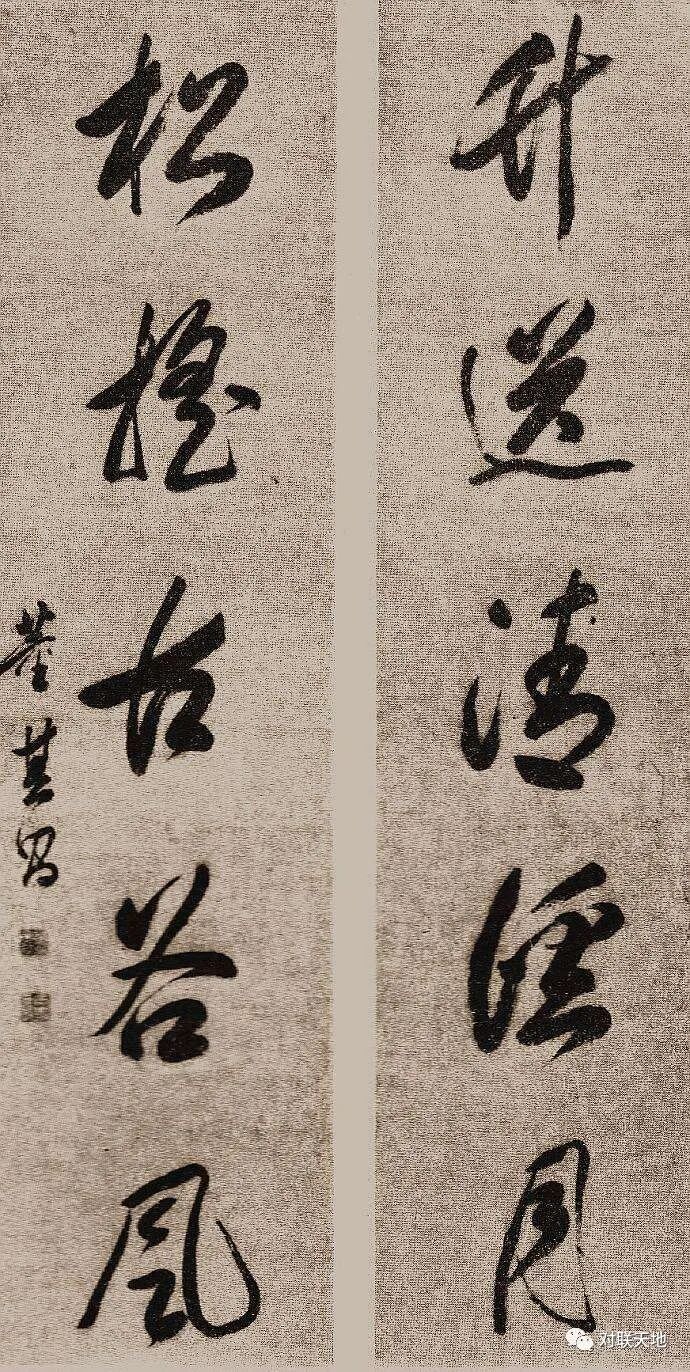 竹送清溪月
松搖古谷風
董其昌
对联天地